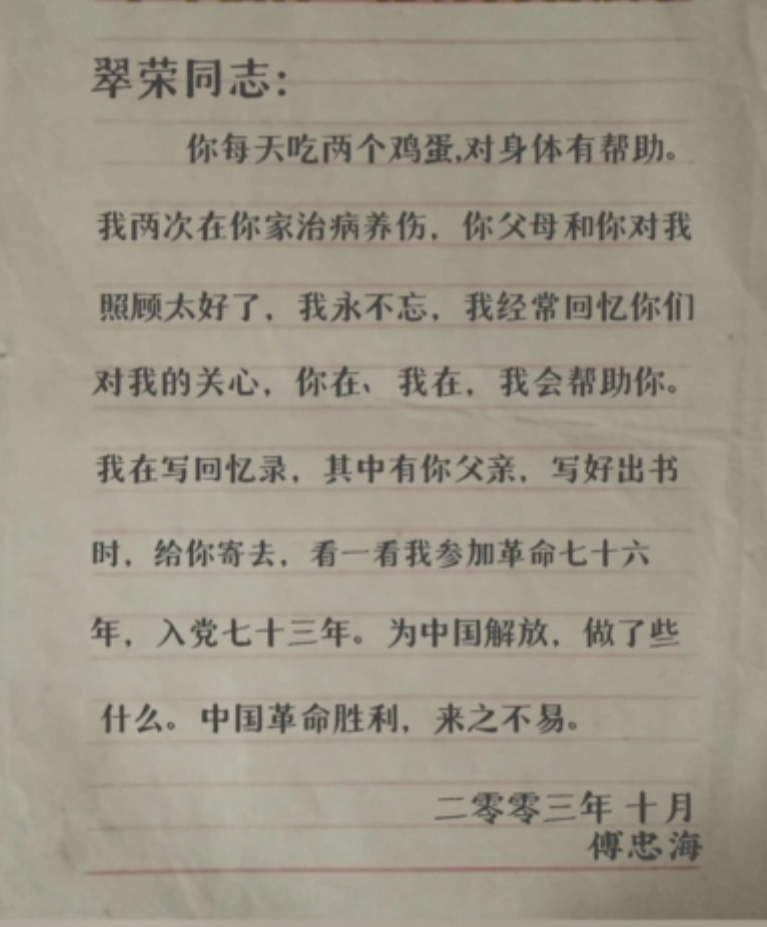 翠荣同志：
你每天吃两个鸡蛋,对身体有帮助。
我两次在你家治病养伤，你父母和你对我
照顾太好了，我永不忘，我经常回忆你们
对我的关心，你在、我在，我会帮助你。
我在写回忆录，其中有你父亲，写好出书
时，给你寄去，看一看我参加革命七十六
年，入党七十三年。为中国解放，做了些
什么。中国革命胜利，来之不易。
二零零三年十月
傅忠海